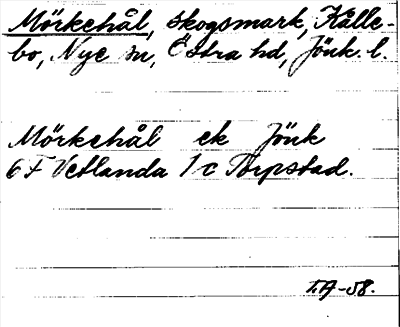 Mörkehål, skogsmark, Källe-
bo, Nye sn, Östra hd, Jönk. l.
Mörkehål ek Jönk
6 F Vetlanda 1 c Torpstad.
T.A-58.